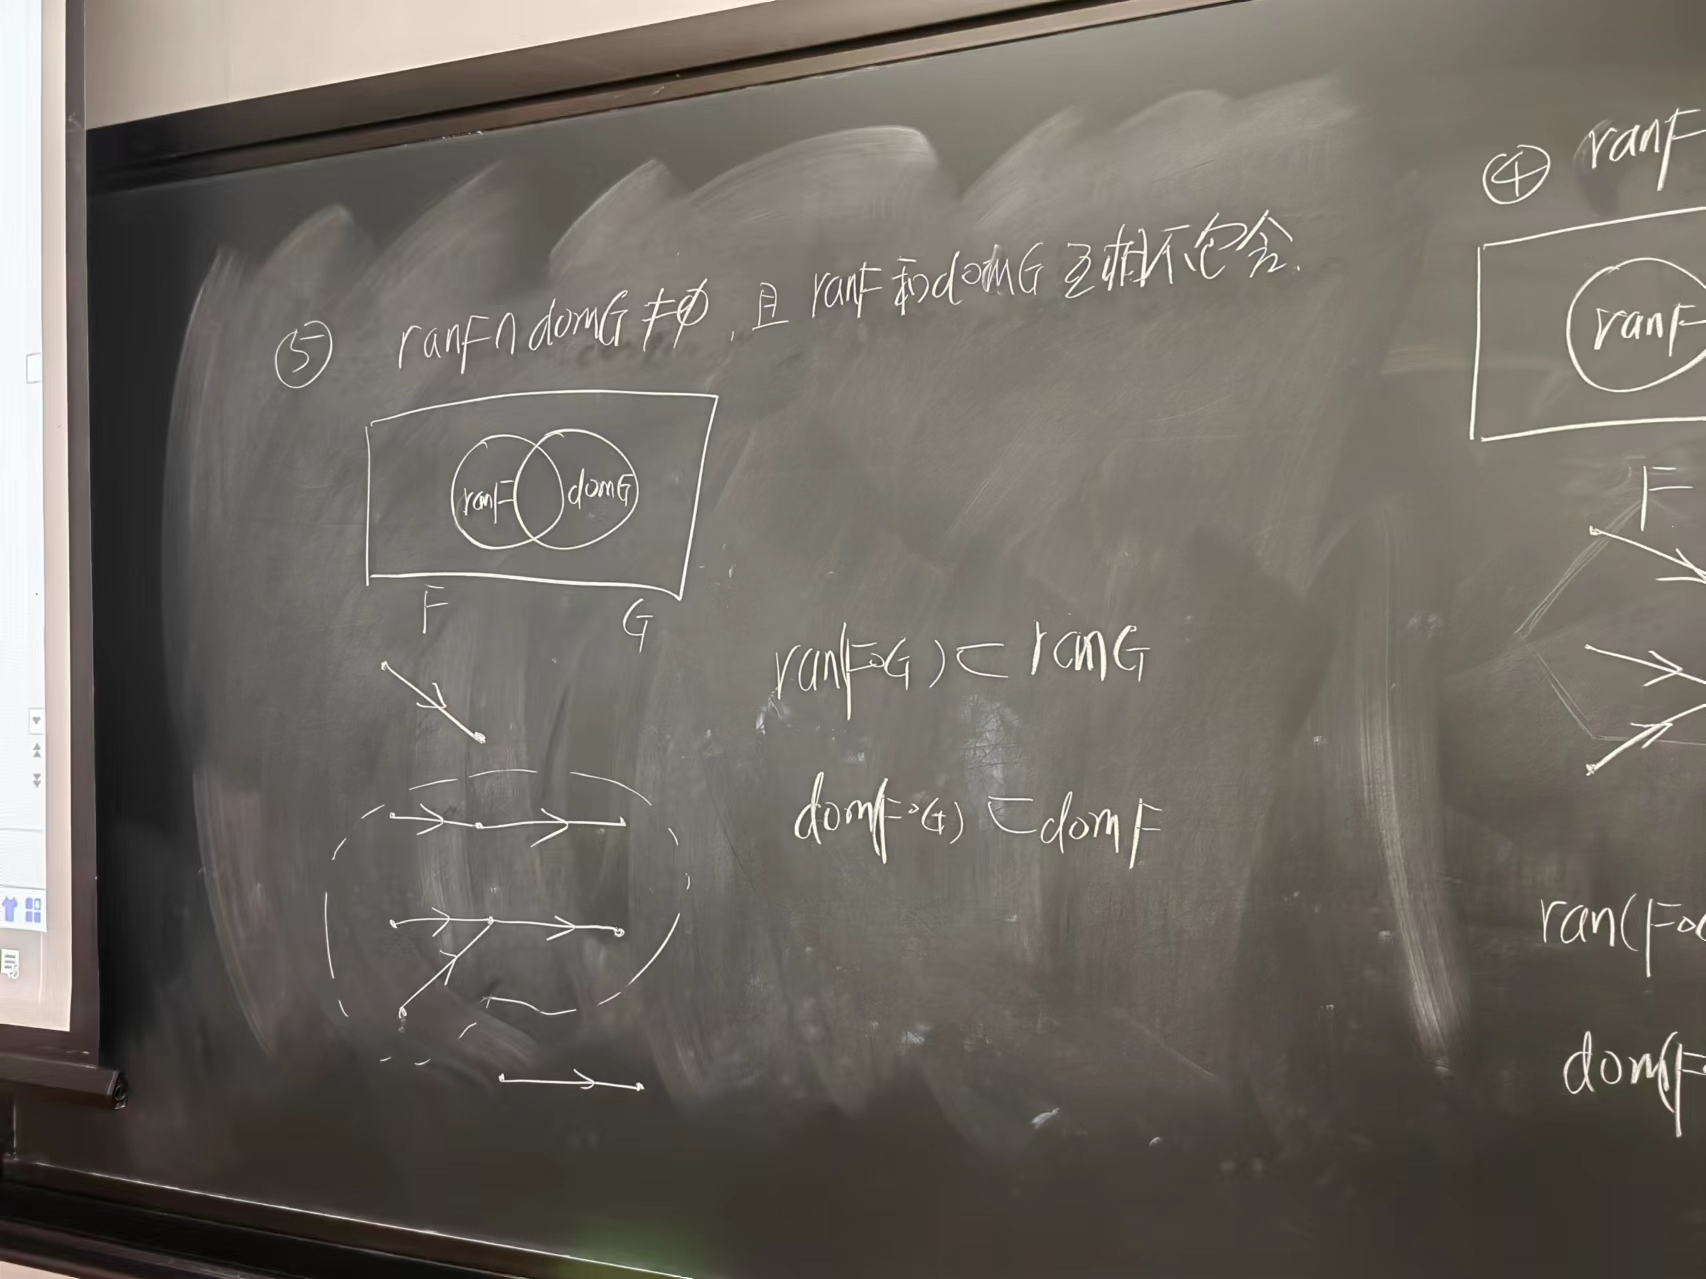 ⑤ ranF∩domG≠∅,且 ranF和domG互相不包含.
ranF domG
F G
ran(F∘G)⊂ranG
dom(F∘G)⊂domF
④ ranF
ranF
F
ran(F∘G
dom(F∘